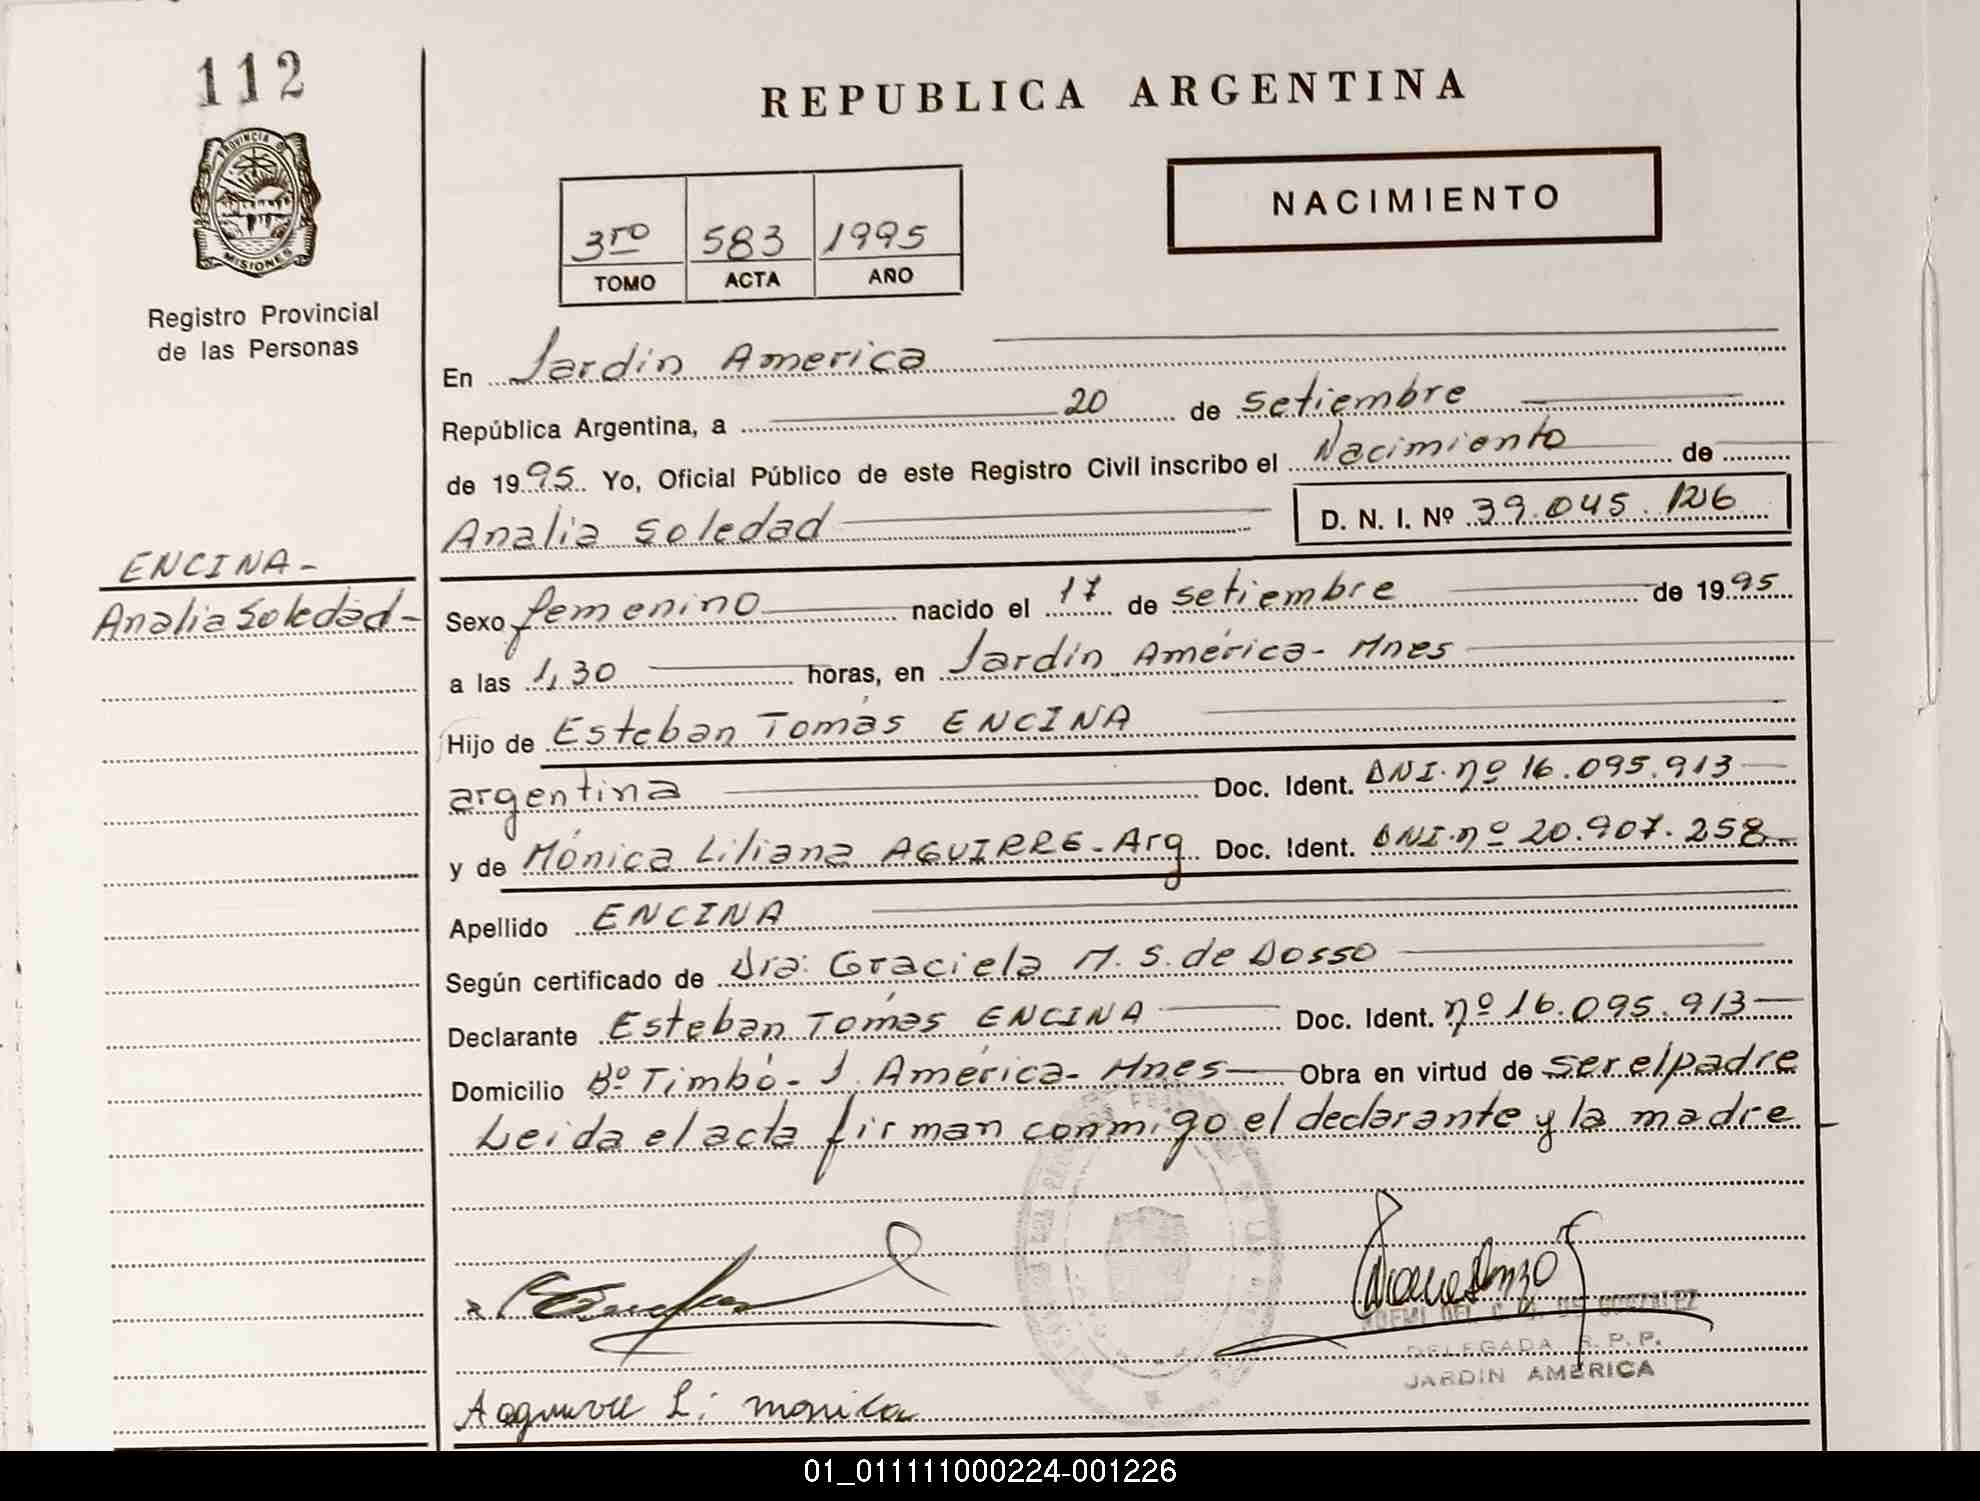 112
REPUBLICA ARGENTINA
PROVINCIA DE
MISIONES
Registro Provincial
de las Personas
3ro 583 1995
TOMO ACTA AÑO
NACIMIENTO
En Jardin America
República Argentina, a 20 de setiembre
de 1995 Yo, Oficial Público de este Registro Civil inscribo el Nacimiento de
Analia Soledad D. N. I. Nº 39.045.126
ENCINA-
Analia Soledad-
Sexo femenino nacido el 17 de setiembre de 1995
a las 1,30 horas, en Jardin América- Mnes
Hijo de Esteban Tomás ENCINA
argentina Doc. Ident. DNI. nº 16.095.913
y de Mónica Liliana AGUIRRE-Arg Doc. Ident. DNI. nº 20.907.258
Apellido ENCINA
Según certificado de Dra: Graciela M. S. de Dosso
Declarante Esteban Tomás ENCINA Doc. Ident. nº 16.095.913
Domicilio Bº Timbó- J. América- Mnes Obra en virtud de ser el padre
Leida el acta firman conmigo el declarante y la madre
NOEMI DEL C. DE GONZALEZ
DELEGADA R.P.P.
JARDIN AMERICA
Li monica
01_011111000224-001226